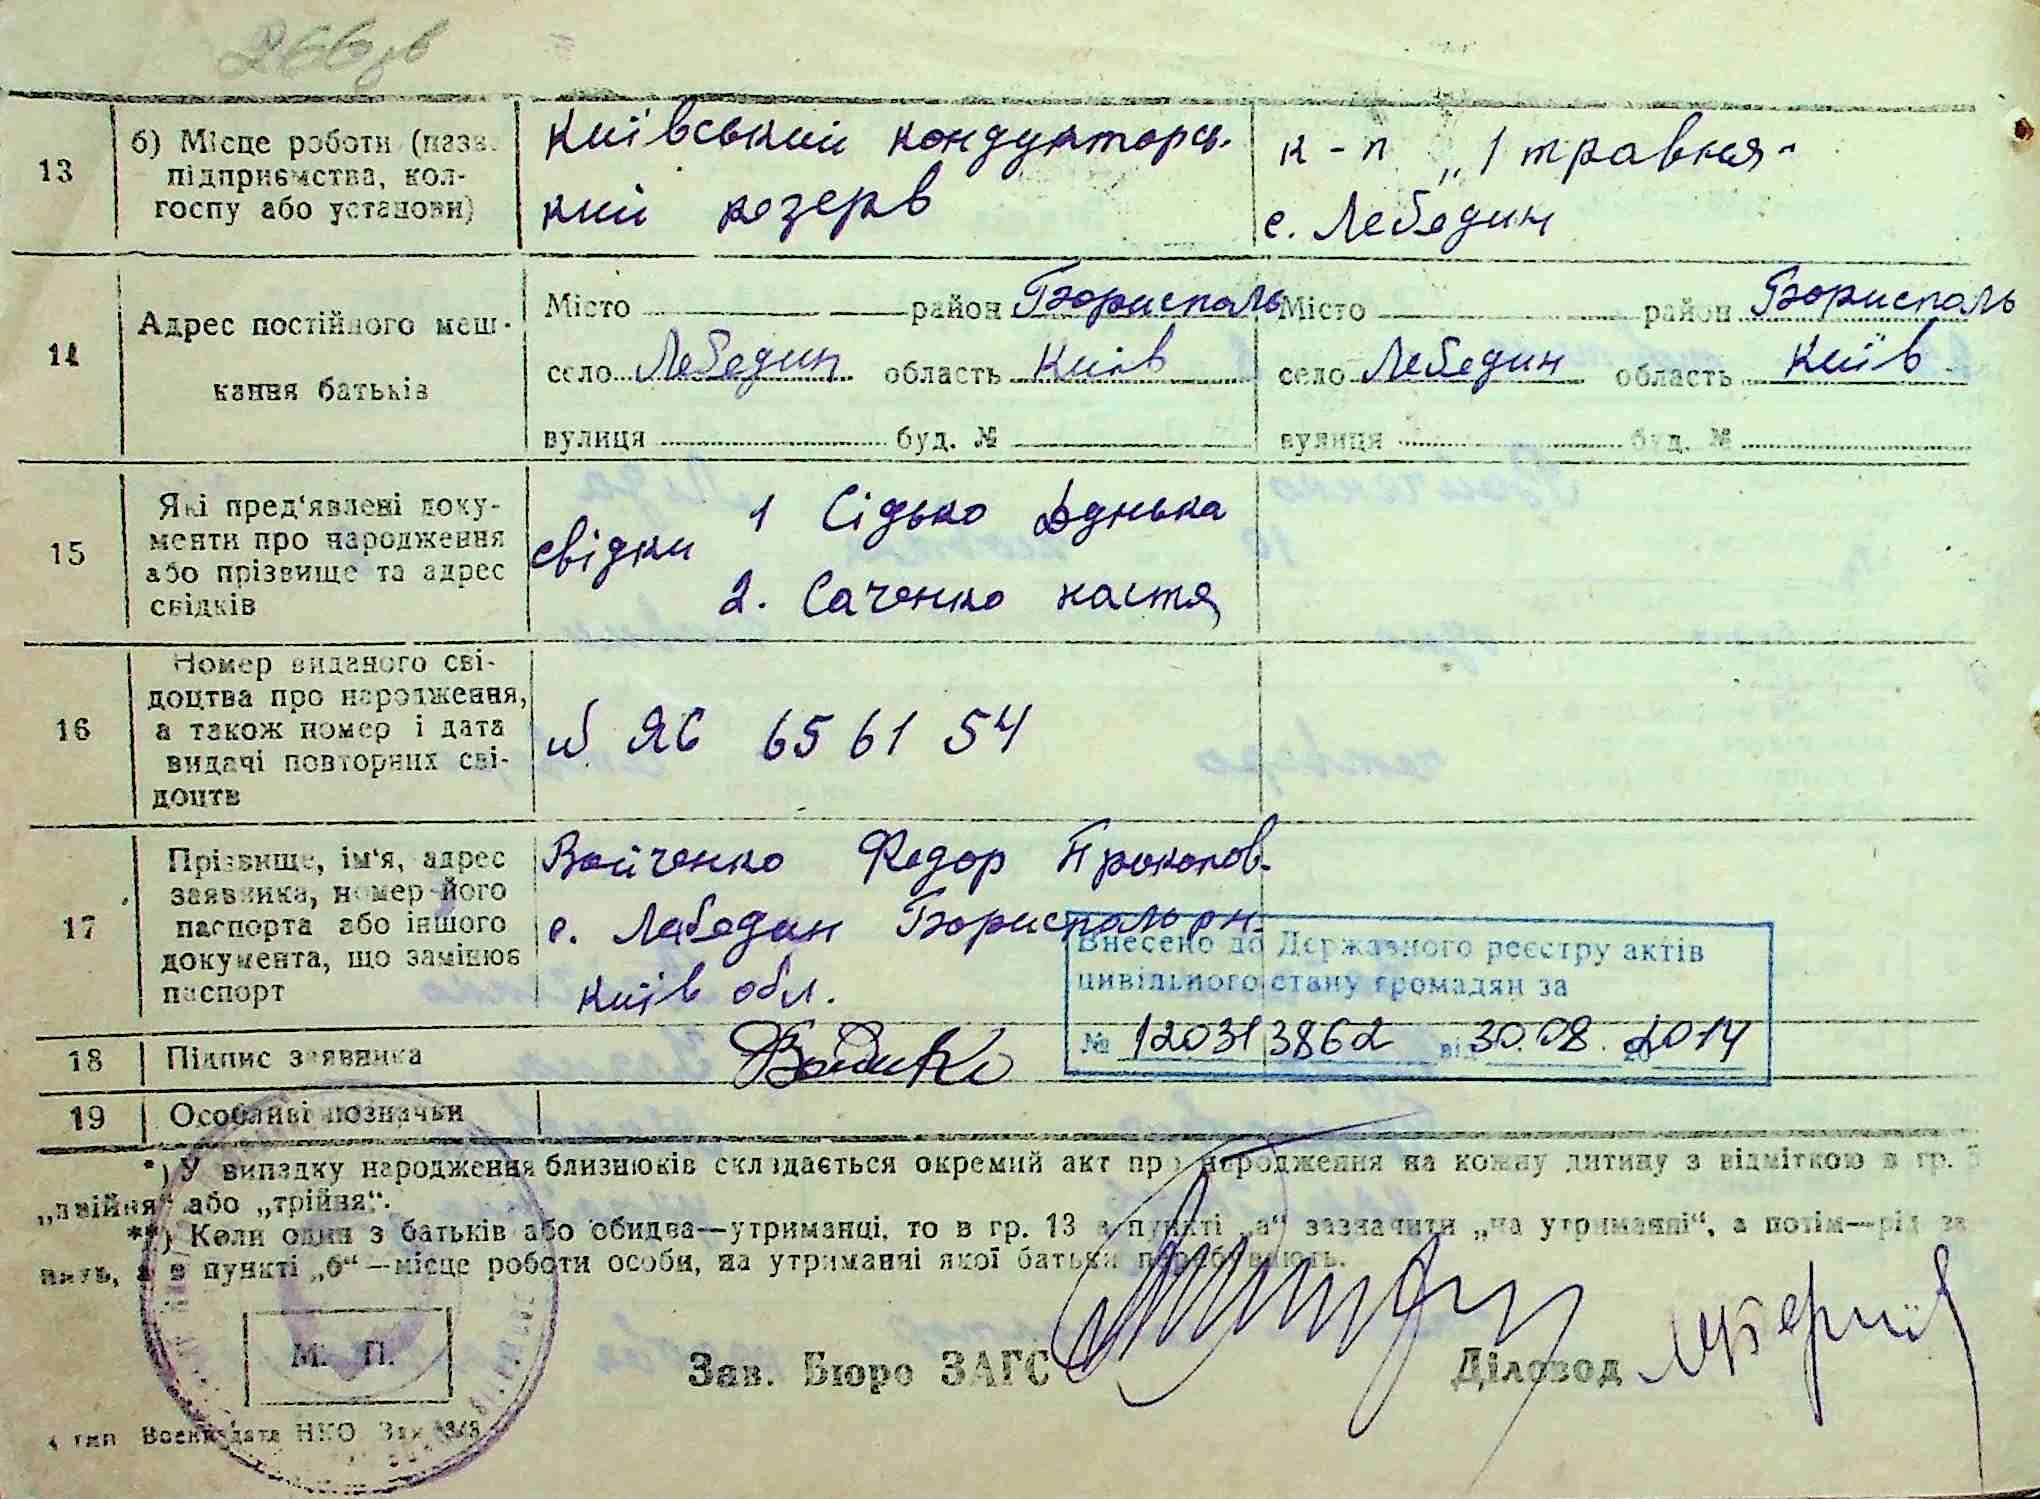 266 зв
13
б) Місце роботи (назв.
підприємства, кол-
госпу або установи)
київський кондукторсь-
кий резерв
к-п „1 травня"
с. Лебедин
14
Адрес постійного меш-
кання батьків
Місто район Бориспаль
село Лебедин область Київ
вулиця буд. №
Місто район Бориспаль
село Лебедин область Київ
вулиця буд. №
15
Які пред'явлені доку-
менти про народження
або прізвище та адрес
свідків
свідки 1 Сідько
2. Саченко настя
16
Номер виданого сві-
доцтва про народження,
а також номер і дата
видачі повторних сві-
доцтв
ЯС 656154
17
Прізвище, ім'я, адрес
заявника, номер його
паспорта або іншого
документа, що замінює
паспорт
Войченко Федор Прокопов.
с. Лебедин Бориспаль рн.
київ обл.
Внесено до Державного реєстру актів
цивільного стану громадян за
№ 120313862 від 30.08.2014
18
Підпис заявника
19
Особливі позначки
*) У випадку народження близнюків складається окремий акт про народження на кожну дитину з відміткою в гр. 5
„двійня“ або „трійня“.
**) Коли один з батьків або обидва—утриманці, то в гр. 13 в пункті „а“ зазначити „на утриманні“, а потім—рід за
нять, а в пункті „б“—місце роботи особи, на утриманні якої батьки перебувають.
М. П.
Зав. Бюро ЗАГС
Діловод